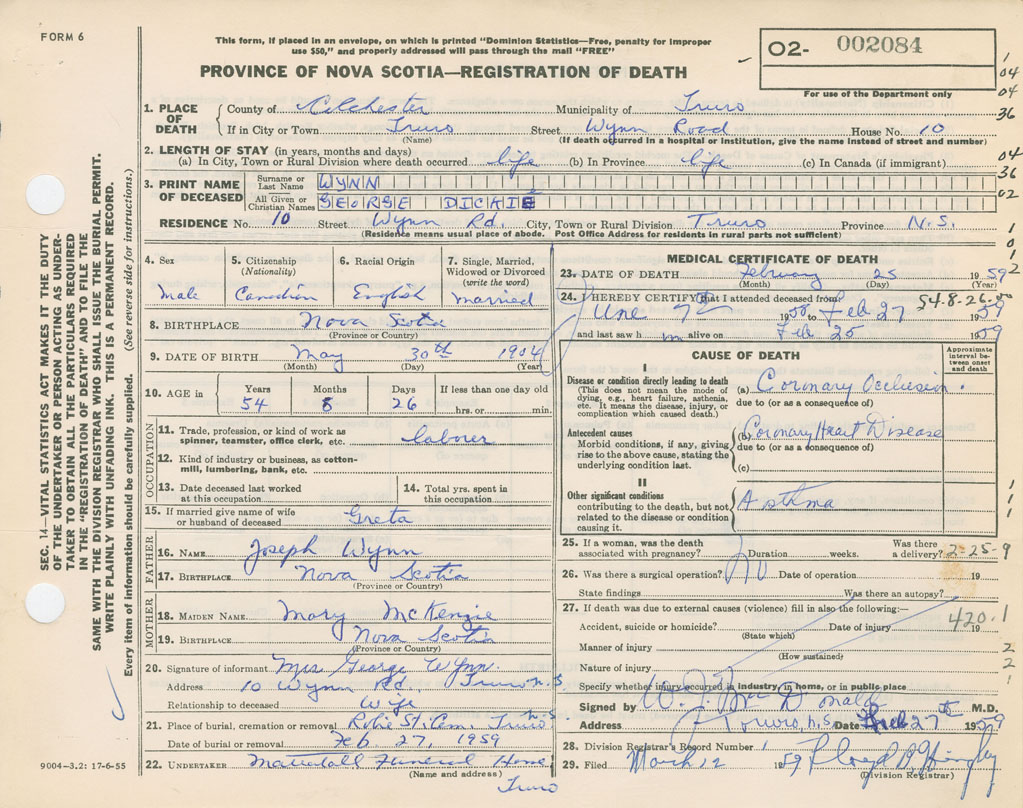 FORM 6
This form, if placed in an envelope, on which is printed "Dominion Statistics—Free, penalty for improper
use $50," and properly addressed will pass through the mail "FREE"
O2- 002084
For use of the Department only
PROVINCE OF NOVA SCOTIA—REGISTRATION OF DEATH
1. PLACE OF DEATH County of Colchester Municipality of Truro
If in City or Town Truro Street Wynn Road House No. 10
(Name) (If death occurred in a hospital or institution, give the name instead of street and number)
2. LENGTH OF STAY (in years, months and days)
(a) In City, Town or Rural Division where death occurred life (b) In Province life (c) In Canada (if immigrant)
3. PRINT NAME OF DECEASED Surname or Last Name WYNN
All Given or Christian Names GEORGE DICKIE
RESIDENCE No. 10 Street Wynn Rd. City, Town or Rural Division Truro Province N.S.
(Residence means usual place of abode. Post Office Address for residents in rural parts not sufficient)
4. Sex Male
5. Citizenship (Nationality) Canadian
6. Racial Origin English
7. Single, Married, Widowed or Divorced (write the word) Married
8. BIRTHPLACE Nova Scotia
(Province or Country)
9. DATE OF BIRTH May 30th 1904
(Month) (Day) (Year)
10. AGE in Years 54 Months 8 Days 26 If less than one day old hrs. or min.
OCCUPATION
11. Trade, profession, or kind of work as spinner, teamster, office clerk, etc. laborer
12. Kind of industry or business, as cotton-mill, lumbering, bank, etc.
13. Date deceased last worked at this occupation
14. Total yrs. spent in this occupation
15. If married give name of wife or husband of deceased Greta
FATHER
16. NAME Joseph Wynn
17. BIRTHPLACE Nova Scotia
(Province or Country)
MOTHER
18. MAIDEN NAME Mary McKenzie
19. BIRTHPLACE Nova Scotia
(Province or Country)
20. Signature of informant Mrs George Wynn
Address 10 Wynn Rd., Truro N.S.
Relationship to deceased Wife
21. Place of burial, cremation or removal Robie St. Cem. Truro N.S.
Date of burial or removal Feb 27, 1959
22. UNDERTAKER Mattatall Funeral Home
(Name and address)
Truro
MEDICAL CERTIFICATE OF DEATH
23. DATE OF DEATH February 25 1959
(Month) (Day) (Year)
54-8-26
24. I HEREBY CERTIFY that I attended deceased from
June 7th 1958 to Feb 27 1959
and last saw h m alive on Feb 25 1959
CAUSE OF DEATH
Approximate interval between onset and death
I
Disease or condition directly leading to death
(This does not mean the mode of dying, e.g., heart failure, asthenia, etc. It means the disease, injury, or complication which caused death.)
(a) Coronary Occlusion.
due to (or as a consequence of)
Antecedent causes
Morbid conditions, if any, giving rise to the above cause, stating the underlying condition last.
(b) Coronary Heart Disease
due to (or as a consequence of)
(c)
II
Other significant conditions
contributing to the death, but not related to the disease or condition causing it.
Asthma
25. If a woman, was the death associated with pregnancy? Duration weeks. Was there a delivery?
2-25-9
26. Was there a surgical operation? No Date of operation 19
State findings Was there an autopsy?
27. If death was due to external causes (violence) fill in also the following:—
Accident, suicide or homicide? Date of injury 19
(State which)
420.1
Manner of injury
(How sustained)
Nature of injury
Specify whether injury occurred in industry, in home, or in public place
Signed by M.D.
Address Truro, N.S. Date Feb 27 1959
28. Division Registrar's Record Number 1
29. Filed March 12 1959
(Division Registrar)
SEC. 14—VITAL STATISTICS ACT MAKES IT THE DUTY
OF THE UNDERTAKER OR PERSON ACTING AS UNDER-
TAKER TO OBTAIN ALL THE PARTICULARS REQUIRED
IN THE "REGISTRATION OF DEATH" AND TO FILE THE
SAME WITH THE DIVISION REGISTRAR WHO SHALL ISSUE THE BURIAL PERMIT.
WRITE PLAINLY WITH UNFADING INK. THIS IS A PERMANENT RECORD.
Every item of information should be carefully supplied. (See reverse side for instructions.)
9004-3.2: 17-6-55
1
04
04
36
04
36
02
1
0
1
2
1
1
1
2
2
1